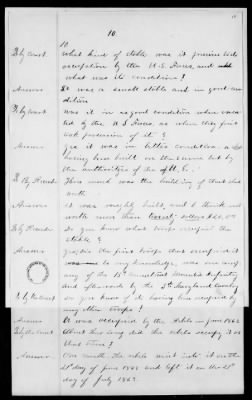 10.
Q by Court. What kind of stable was it previous to its
occupation by the U.S. Forces, and
what was its condition?
Answer It was a small stable and in good con-
dition
Q by Court Was it in as good condition when vaca-
ted by the U.S. Forces as when they first
took possession of it?
Answer Yes it was in better condition, a
having been built on that same lot by
the authorities of the
Q. By How much was the building of that
worth
Answer It was roughly built, and I think not
worth more than
Q by Do you know what troops occupied the
stable?
Answer Yes, Sir the first troops that occupied it
to my knowledge, was one company
of the 12th Connecticut Infantry
and afterwards by the 3rd Maryland Cavalry
Q. by the Court Do you know of its having been occupied by
any other troops?
Answer It was occupied by the rebels in June 1863
Q by the Court About how long did the rebels occupy it at
that time?
Answer One month the rebels went into it on the
21st day of June 1863 and left it on the 21st
day of July 1863.